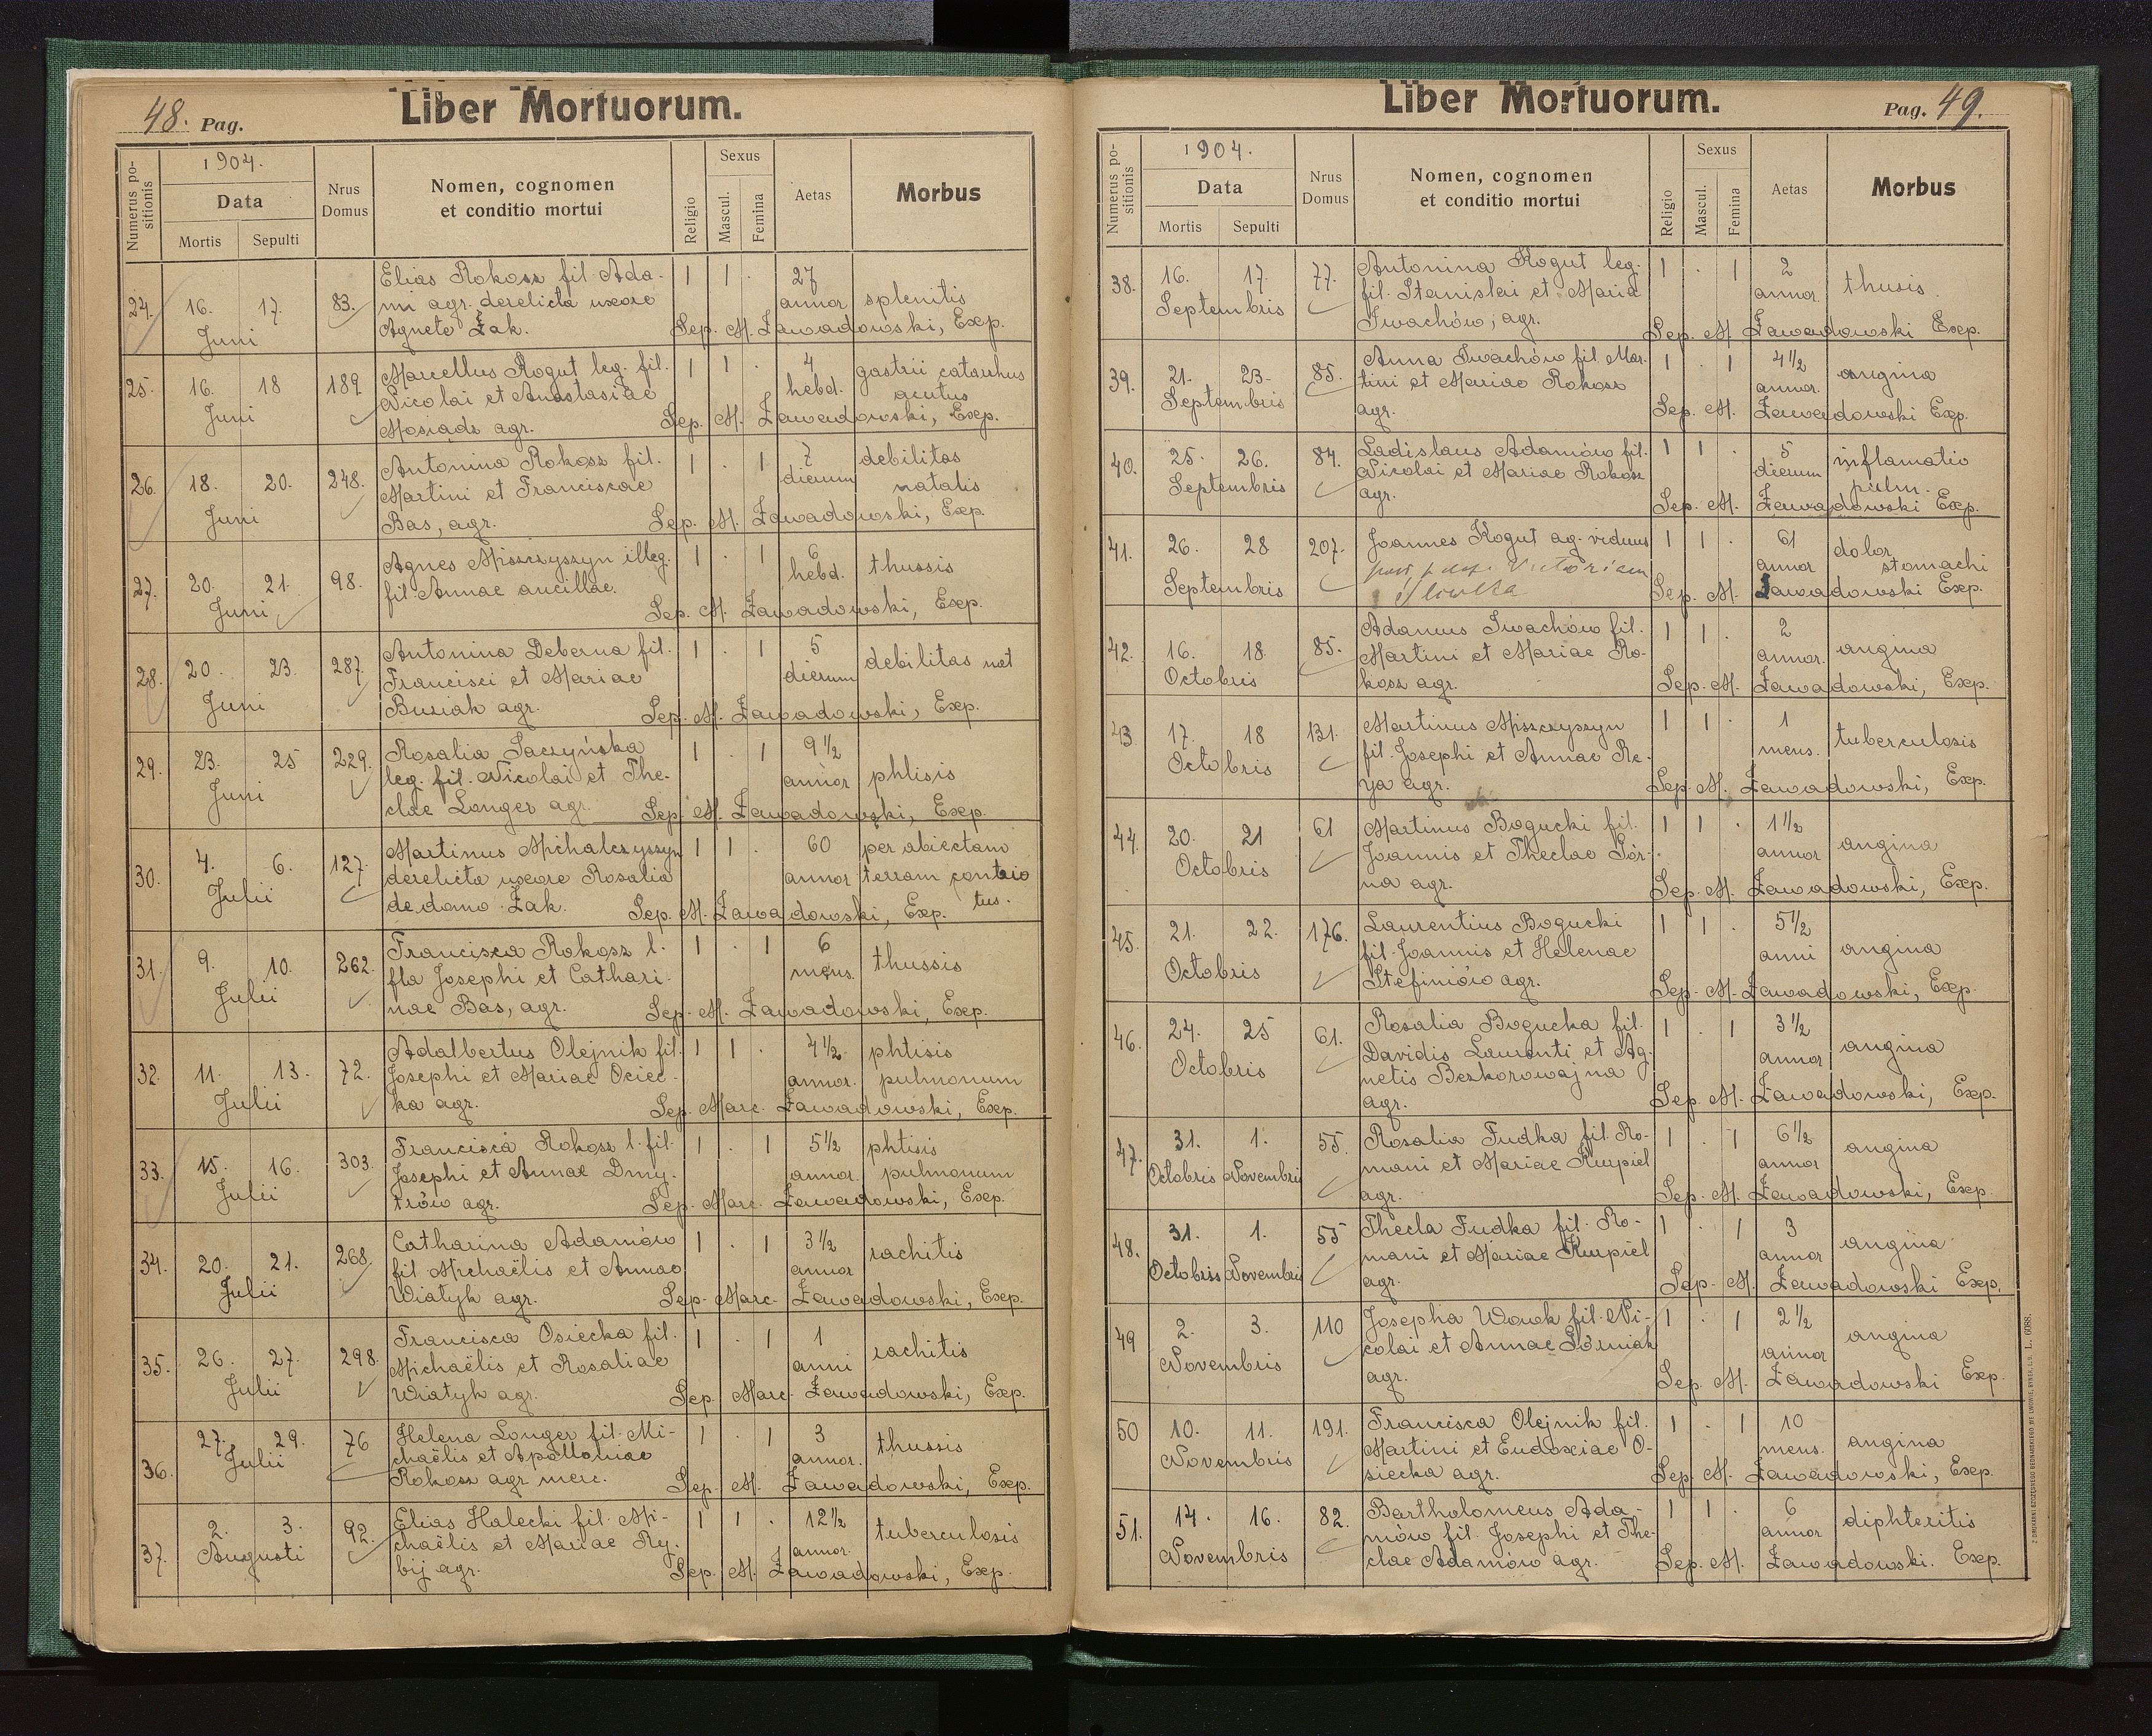 48. Pag.
Liber Mortuorum.
Numerus positionis
1904.
Data
Mortis Sepulti
Nrus Domus
Nomen, cognomen
et conditio mortui
Religio
Sexus
Mascul.
Femina
Aetas
Morbus
24. 16. 17. Juni 83. Elias Rokosz fil. Ada- 1 1 . 27
mi agr. derelicta uxore annor splenitis
Agnete Żak. Sep. M. Zawadowski, Exp.
25. 16. 18 Juni 189 Marcellus Kogut leg. fil. 1 1 . 4 gastrii catarrhus
Nicolai et Anastasiae hebd. acutus
Mosiądz agr. Sep. M. Zawadowski, Exp.
26. 18. 20. Juni 248. Antonina Rokosz fil. 1 . 1 7 debilitas
Martini et Franciscae dierum natalis
Bas, agr. Sep. M. Zawadowski, Exp.
27. 20. 21. Juni 98. Agnes Miszczyszyn illeg. 1 . 1 6 thussis
fil. Annae ancillae. hebd.
Sep. M. Zawadowski, Exp.
28. 20. 23. Juni 287. Antonina Deberna fil. 1 . 1 5 debilitas nat
Francisci et Mariae dierum
Buziak agr. Sep. M. Zawadowski, Exp.
29. 23. 25 Juni 229. Rosalia Saczyńska 1 . 1 9 1/2
leg. fil. Nicolai et The- annor phtisis
clae Longer agr. Sep. M. Zawadowski, Exp.
30. 4. 6. Julii 127. Martinus Michalczyszyn 1 1 . 60 per abiectam
derelicta uxore Rosalia annor terram contrio
de domo Żak. Sep. M. Zawadowski, Exp. tus.
31. 9. 10. Julii 262. Francisca Rokosz l. 1 . 1 6
fla Josephi et Cathari- mens. thussis
nae Bas, agr. Sep. M. Zawadowski, Exp.
32. 11. 13. Julii 72. Adalbertus Olejnik fil. 1 1 . 4 1/2 phtisis
Josephi et Mariae Osiec- annor. pulmonum
ka agr. Sep. Marc. Zawadowski, Exp.
33. 15. 16. Julii 303. Francisca Rokosz l. fil. 1 . 1 5 1/2 phtisis
Josephi et Annae Dmy- annor. pulmonum
trów agr. Sep. Marc. Zawadowski, Exp.
34. 20. 21. Julii 268. Catharina Adamów 1 . 1 3 1/2 rachitis
fil. Michaëlis et Annae annor
Wiatyk agr. Sep. Marc. Zawadowski, Exp.
35. 26. 27. Julii 298. Francisca Osiecka fil. 1 . 1 1
Michaëlis et Rosaliae anni rachitis
Wiatyk agr. Sep. Marc. Zawadowski, Exp.
36. 27. 29. Julii 76 Helena Longer fil. Mi- 1 . 1 3 thussis
chaëlis et Apolloniae annor.
Rokosz agr. merc. Sep. M. Zawadowski, Exp.
37. 2. 3. Augusti 92. Elias Halecki fil. Mi- 1 1 . 12 1/2 tuberculosis
chaëlis et Mariae Ry- annor.
bij agr. Sep. M. Zawadowski, Exp.
Liber Mortuorum.
Pag. 49.
Numerus positionis
1904.
Data
Mortis Sepulti
Nrus Domus
Nomen, cognomen
et conditio mortui
Religio
Sexus
Mascul.
Femina
Aetas
Morbus
38. 16. 17. Septembris 77. Antonina Kogut leg. 1 . 1 2 thusis
fil. Stanislai et Maria annor.
Iwachów, agr. Sep. M. Zawadowski Exp.
39. 21. 23. Septembris 85. Anna Iwachów fil. Mar- 1 . 1 4 1/2 angina
tini et Mariae Rokosz annor.
agr. Sep. M. Zawadowski Exp.
40. 25. 26. Septembris 84. Ladislaus Adamów fil. 1 1 . 5 inflamatio
Nicolai et Mariae Rokosz dierum pulm.
agr. Sep. M. Zawadowski Exp.
41. 26. 28 Septembris 207. Joannes Kogut ag. viduus 1 1 . 61 dolor
Victoriam annor stomachi
Sep. M. Zawadowski Exp.
42. 16. 18 Octobris 85. Adamus Iwachów fil. 1 1 . 2
Martini et Mariae Ro- annor. angina
kosz agr. Sep. M. Zawadowski, Exp.
43 17. 18 Octobris 131. Martinus Miszczyszyn 1 1 . 1
fil. Josephi et Annae Re- mens. tuberculosis
ya agr. Sep. M. Zawadowski, Exp.
44. 20. 21 Octobris 61 Martinus Bogucki fil. 1 1 . 1 1/2
Joannis et Theclae Gór- annor angina
na agr. Sep. M. Zawadowski, Exp.
45. 21. 22. Octobris 176. Laurentius Bogucki 1 1 . 5 1/2
fil. Joannis et Helenae anni angina
Stefiniów agr. Sep. M. Zawadowski, Exp.
46. 24. 25 Octobris 61. Rosalia Bogucka fil. 1 . 1 3 1/2
Davidis Laurenti et Ag- annor angina
netis Bezkorowajna
agr. Sep. M. Zawadowski, Exp.
47. 31. Octobris 1. Novembris 55 Rosalia Fudka fil. Ro- 1 . 1 6 1/2
mani et Mariae Kurpiel annor angina
agr. Sep. M. Zawadowski, Exp.
48. 31. Octobris 1. Novembris 55 Thecla Fudka fil. Ro- 1 . 1 3
mani et Mariae Kurpiel annor angina
agr. Sep. M. Zawadowski Exp.
49 2. 3. Novembris 110 Josepha Wowk fil. Ni- 1 . 1 2 1/2
colai et Annae Górniak annor angina
agr. Sep. M. Zawadowski Exp.
50 10. 11. Novembris 191. Francisca Olejnik fil. 1 . 1 10
Martini et Eudoxiae O- mens. angina
siecka agr. Sep. M. Zawadowski, Exp.
51. 14. 16. Novembris 82. Bartholomeus Ada- 1 1 . 6 diphteritis
mów fil. Josephi et The- annor
clae Adamów agr. Sep. M. Zawadowski. Exp.
L. 6088.